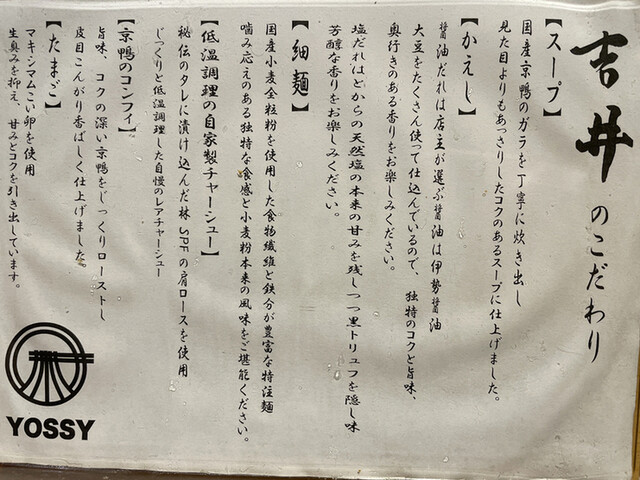 吉井のこだわり
【スープ】
国産京鴨のガラを丁寧に炊き出し
見た目よりもあっさりしたコクのあるスープに仕上げました。
【かえし】
醤油だれは店主が選ぶ醤油は伊勢醤油
大豆をたくさん使って仕込んでいるので、独特のコクと旨味、
奥行きのある香りをお楽しみください。
塩だれはどからの天然塩の本来の甘みを残しつつ黒トリュフを隠し味
芳醇な香りをお楽しみください。
【細麺】
国産小麦全粒粉を使用した食物繊維と鉄分が豊富な特注麺
噛み応えのある独特な食感と小麦粉本来の風味をご堪能ください。
【低温調理の自家製チャーシュー】
秘伝のタレに漬け込んだ林SPFの肩ロースを使用
じっくりと低温調理した自慢のレアチャーシュー
【京鴨のコンフィ】
旨味、コクの深い京鴨をじっくりローストし
皮目こんがり香ばしく仕上げました。
【たまご】
マキシマムこい卵を使用
生臭みを抑え、甘みとコクを引き出しています。
YOSSY